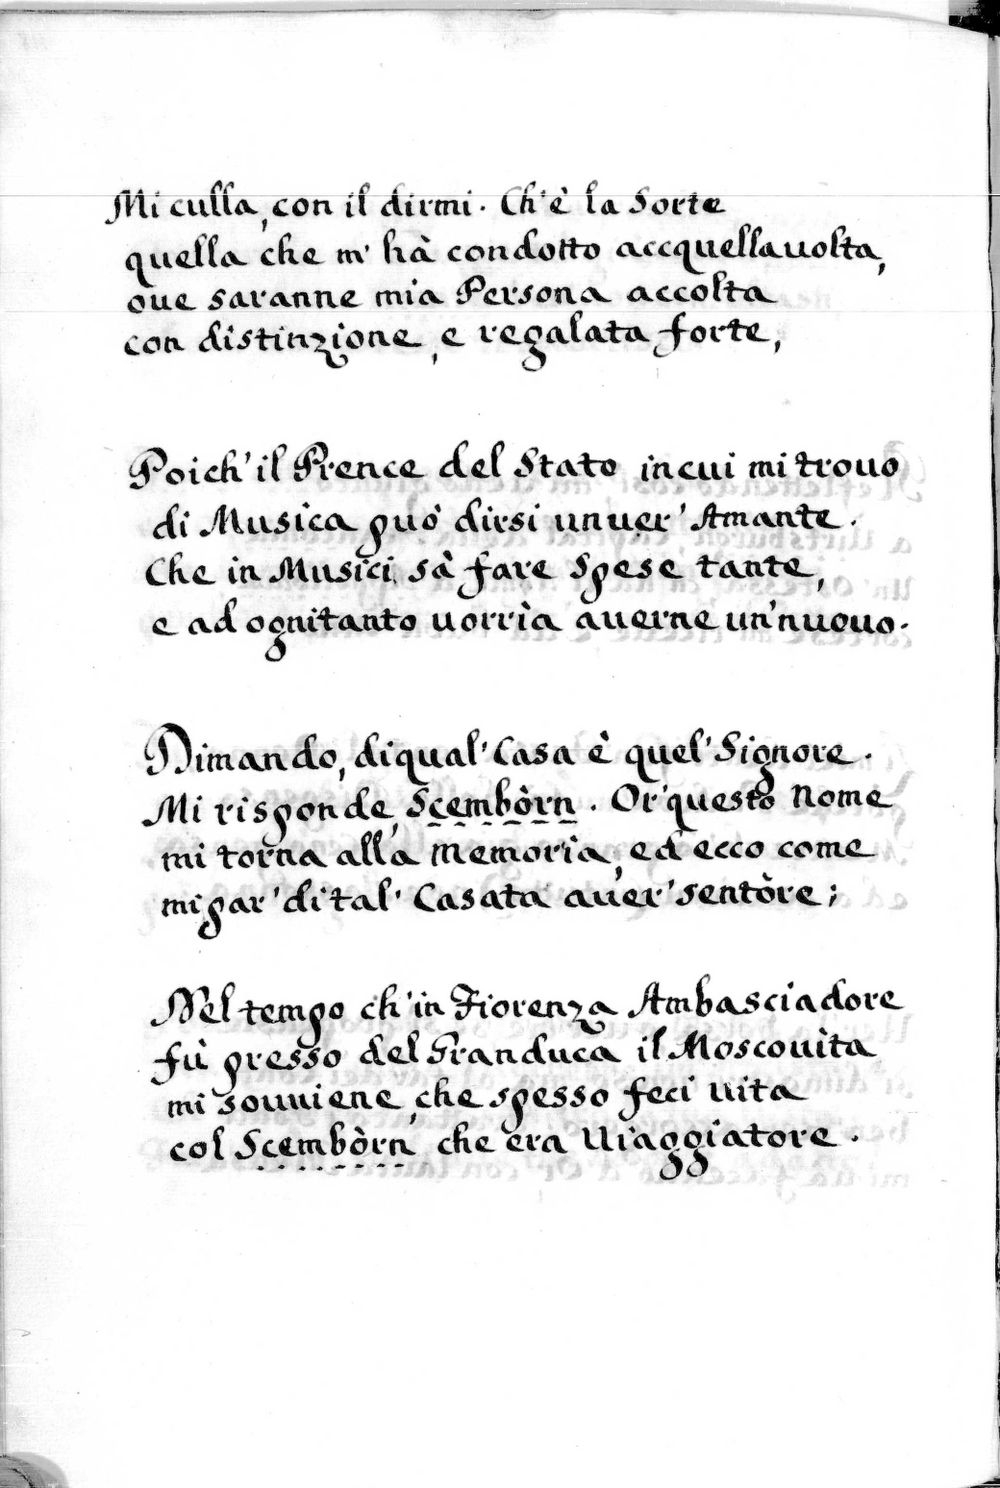 Mi culla, con il dirmi. Ch'è la Sorte
quella che m' hà condotto accquellauolta,
oue saranne mia Persona accolta
con distinzione, e regalata forte,
Poich' il Prence del Stato in cui mi trouo
di Musica può dirsi un uer' Amante.
Che in Musici sà fare spese tante,
e ad ogni tanto uorrìa auerne un' nuouo.
Dimando, di qual' Casa è quel' Signore.
Mi risponde, Scembòrn. Or' questo Nome
mi torna alla memoria, ed ecco come
mi par' di tal' Casata auer' sentòre;
Nel tempo ch' in Fiorenza Ambasciadore
fù presso del Granduca il Moscouìta
mi souuiene, che spesso feci uita
col Scembòrn, che era Uiaggiatore.